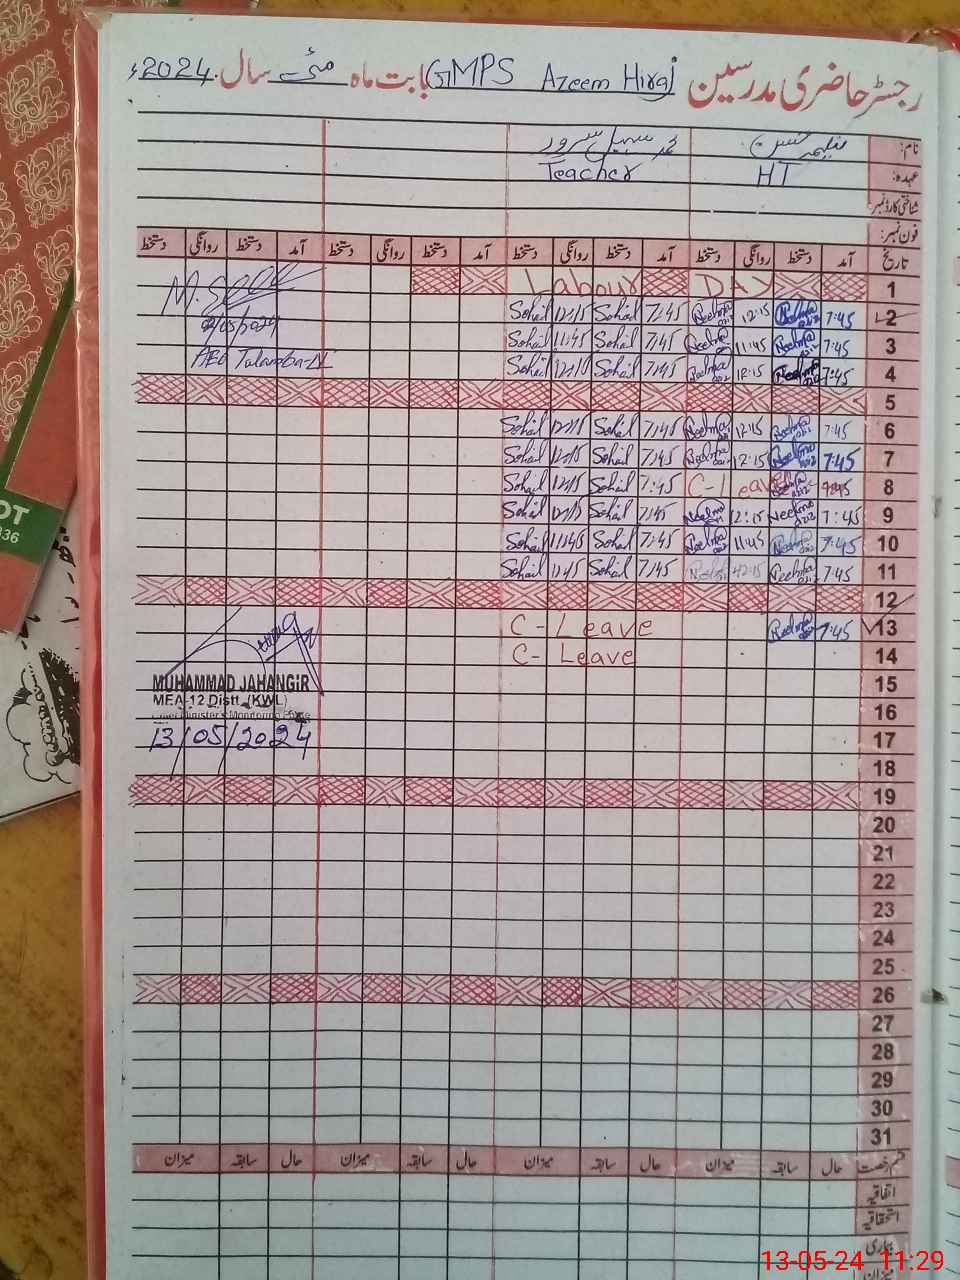 رجسٹر حاضری مدرسین GMPS Azeem Hiraj بابت ماہ مئی سال 2024ء
نام: محمد سہیل سرور
عہدہ: HT Teacher
شناختی کارڈ نمبر:
فون نمبر:
تاریخ آمد دستخط روانگی دستخط آمد دستخط روانگی دستخط آمد دستخط روانگی دستخط آمد دستخط روانگی دستخط
1 Labour DAY
2 7:45 Neelma 12:15 Neelma 7:45 Sohail 12:15 Sohail
3 7:45 Neelma 11:45 Neelma 7:45 Sohail 11:45 Sohail
4 7:45 Neelma 12:15 Neelma 7:45 Sohail 12:10 Sohail
5
6 7:45 Neelma 12:15 Neelma 7:45 Sohail 12:15 Sohail
7 7:45 Neelma 12:15 Neelma 7:45 Sohail 12:15 Sohail
8 C-Leave 7:45 Sohail 12:15 Sohail
9 7:45 Neelma 12:15 Neelma 7:45 Sohail 12:15 Sohail
10 7:45 Neelma 11:45 Neelma 7:45 Sohail 11:45 Sohail
11 7:45 Neelma 12:15 7:45 Sohail 11:45 Sohail
12
13 7:45 Neelma C-Leave
14 C-Leave
15
16
17
18
19
20
21
22
23
24
25
26
27
28
29
30
31
AEO Talamba-II
MUHAMMAD JAHANGIR
MEA-12 Distt. (KWL)
Chief Minister's Monitoring Force
13/05/2024
قسم رخصت حال سابقہ میزان حال سابقہ میزان حال سابقہ میزان حال سابقہ میزان
اتفاقیہ
استحقاقیہ
بیماری
میزان
OT
336
13-05-24 11:29